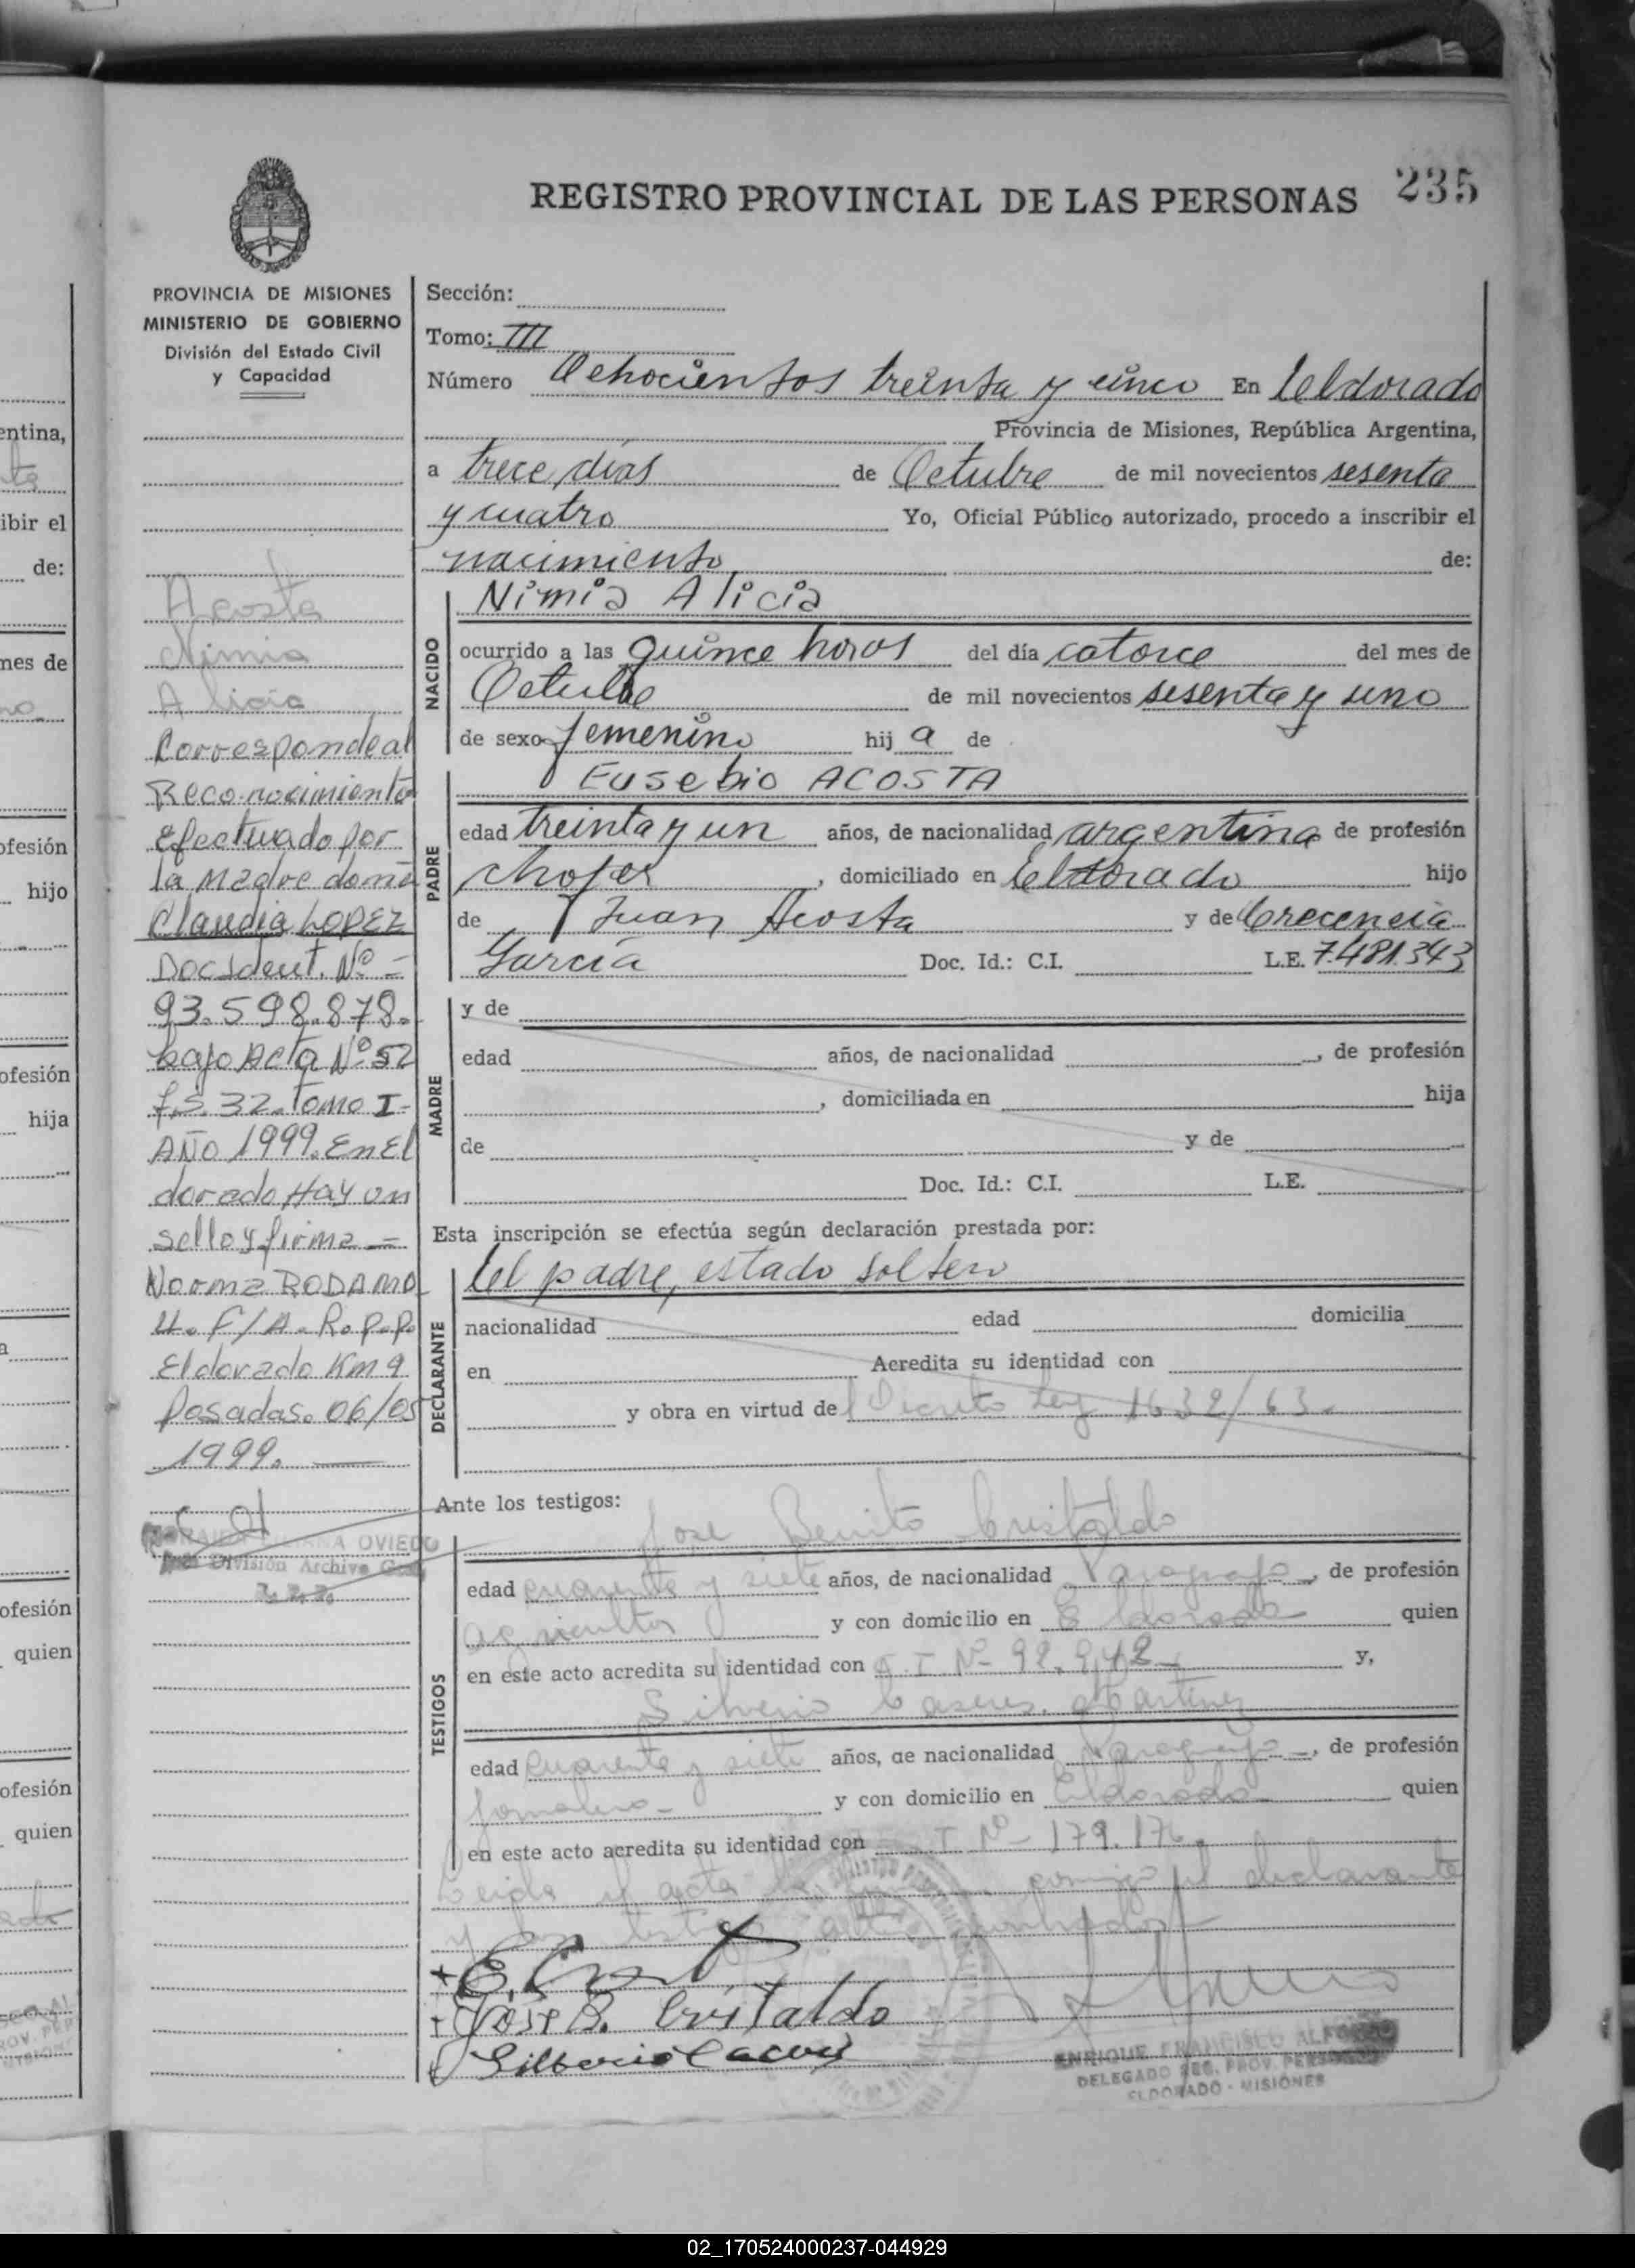 REGISTRO PROVINCIAL DE LAS PERSONAS 235
PROVINCIA DE MISIONES
MINISTERIO DE GOBIERNO
División del Estado Civil
y Capacidad
Acosta
Nimia
Alicia
Corresponde al
Reconocimiento
efectuado por
la Madre doña
Claudia LOPEZ
Doc Ident. Nº -
93.598.878.
bajo Acta Nº 52
fs. 32. Tomo I-
AÑO 1999. En El
dorado Hay un
sello y firma -
Norma RODAMO
U. F/A. R.P.P.
Eldorado Km 9
Posadas. 06/05
1999.
OVIEDO
División Archivo
Sección:
Tomo: III
Número Ochocientos treinta y cinco En Eldorado
Provincia de Misiones, República Argentina,
a trece días de Octubre de mil novecientos sesenta
y cuatro Yo, Oficial Público autorizado, procedo a inscribir el
nacimiento de:
NACIDO
Nimia Alicia
ocurrido a las quince horas del día catorce del mes de
Octubre de mil novecientos sesenta y uno
de sexo femenino hij a de
PADRE
Eusebio ACOSTA
edad treinta y un años, de nacionalidad argentina de profesión
chofer, domiciliado en Eldorado hijo
de Juan Acosta y de Crecencia
García Doc. Id.: C.I. L.E. 7.481.343
MADRE
y de
edad años, de nacionalidad , de profesión
, domiciliada en hija
de y de
Doc. Id.: C.I. L.E.
Esta inscripción se efectúa según declaración prestada por:
DECLARANTE
el padre, estado soltero
nacionalidad edad domicilia
en Acredita su identidad con
y obra en virtud del Decreto Ley 1632/63.
Ante los testigos:
TESTIGOS
Jose Benito Cristaldo
edad cuarenta y siete años, de nacionalidad Paraguayo, de profesión
agricultor y con domicilio en Eldorado quien
en este acto acredita su identidad con C.I. Nº 98.942 y,
Silverio Caseres Martinez
edad cuarenta y siete años, de nacionalidad Paraguayo, de profesión
jornalero- y con domicilio en Eldorado quien
en este acto acredita su identidad con I Nº- 179.176.
Leida el acta conmigo el declarante
y los testigos
Jose B. Cristaldo
ENRIQUE FRANCISCO ALFONZO
DELEGADO REG. PROV. PERSONAS
ELDORADO - MISIONES
entina,
ibir el
de:
mes de
ofesión
hijo
ofesión
hija
ofesión
quien
ofesión
quien
02_170524000237-044929